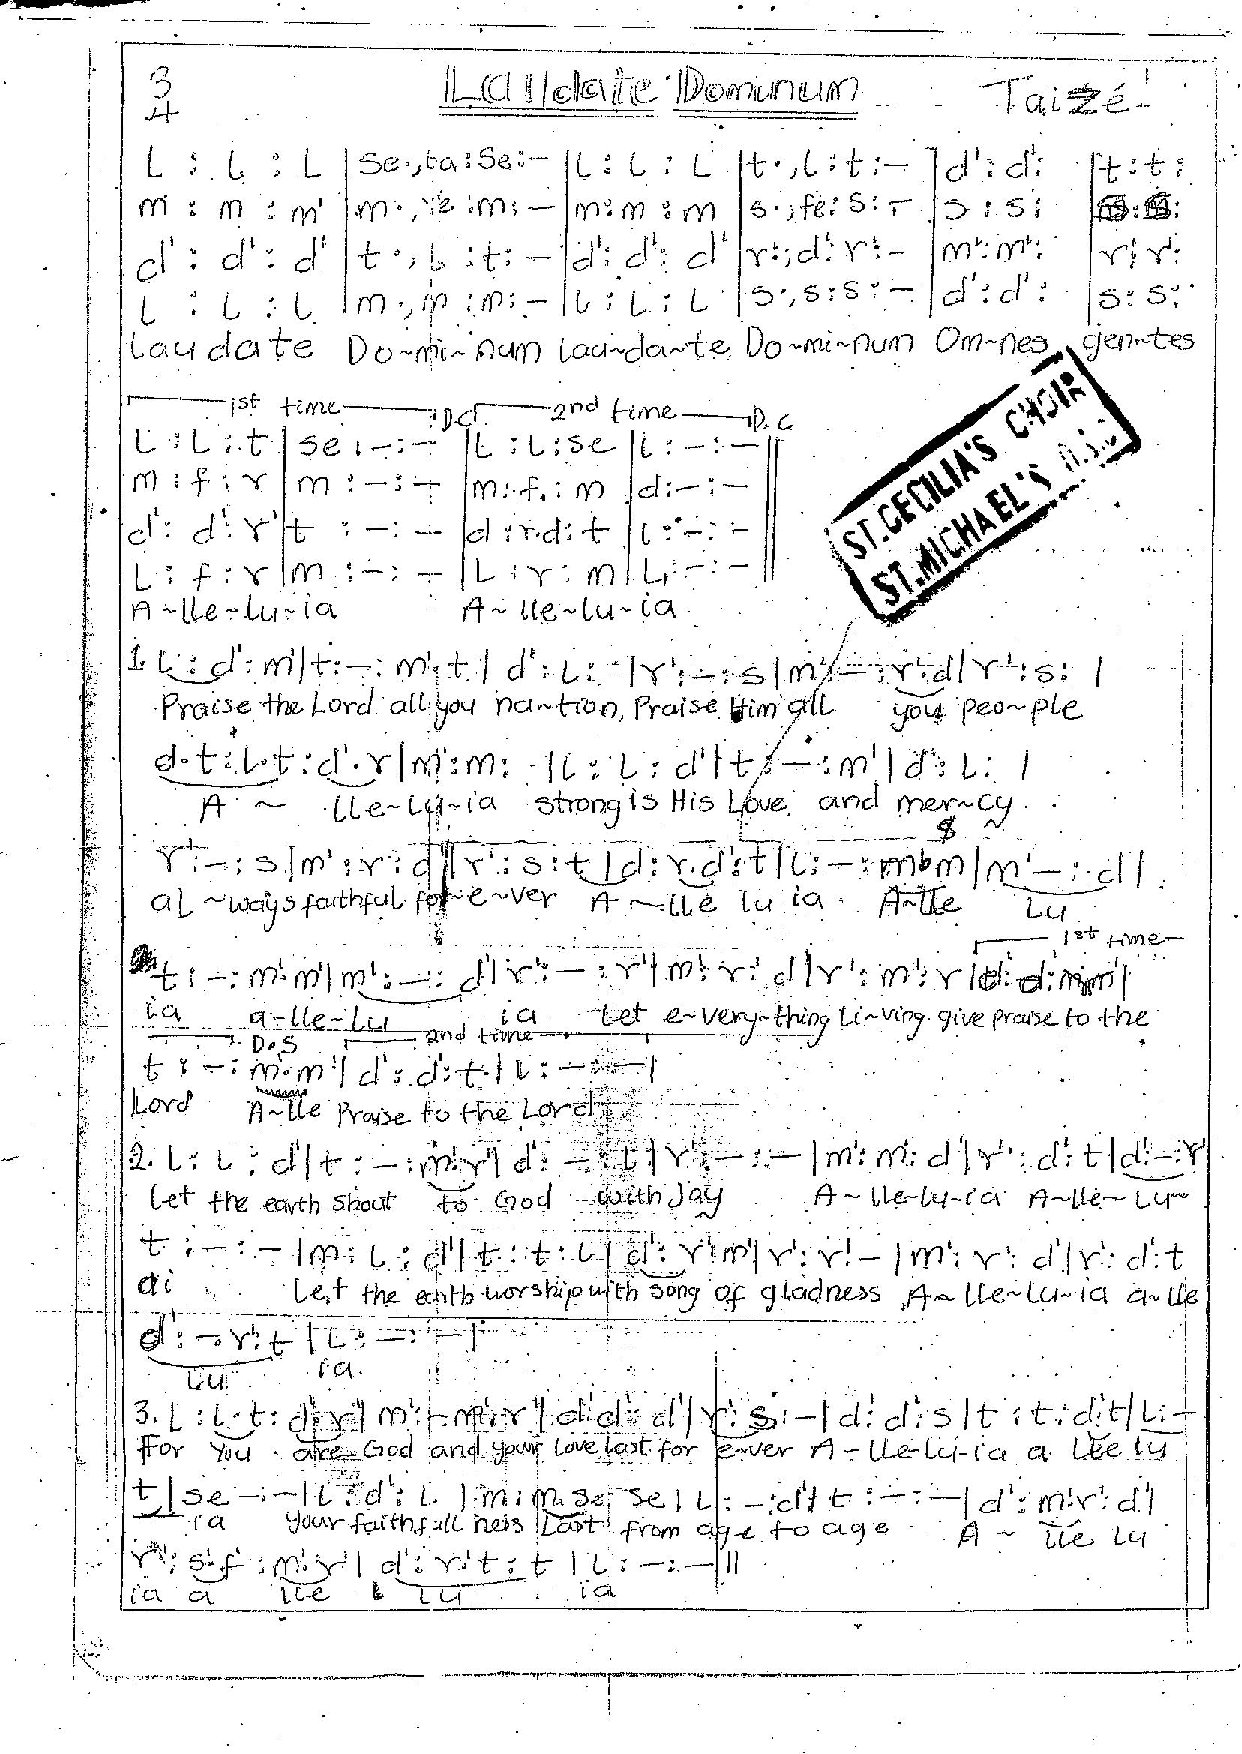 3 Laudate Dominum Taizé
4
L : L : L | se ., ba : se : – | L : L : L | t ., L : t : – | d' : d' : | t : t :
m : m : m | m ., re : m : – | m : m : m | s ., fe : s : – | s : s : |
d' : d' : d' | t ., L : t : – | d' : d' : d' | r' ., d' : r' : – | m' : m' : | r' : r' :
L : L : L | m ., m : m : – | L : L : L | s ., s : s : – | d' : d' : | s : s :
Laudate Do~mi~num Lau~da~te Do~mi~num Om~nes gen~tes
1st time D.C 2nd time D.C
L : L : t | se : – : – | L : L : se | L : – : – ||
m : f : r | m : – : – | m : f : m | d : – : – ||
d' : d' : r' | t : – : – | d : r.d : t | L : – : – ||
L : f : r | m : – : – | L : r : m | L, : – : – ||
A~lle~Lu~ia A~lle~Lu~ia
ST. CECILIA'S CHOIR
ST. MICHAEL'S
1. L : d' : m' | t : – : m' . t | d' : L : | r' : – : s | m' : – : r' . d | r' : s : |
Praise the Lord all you na~tion, Praise Him all you peo~ple
d . t : L . t : d' . r | m' : m : | L : L : d' | t : – : m' | d' : L : |
A ~ lle~Lu~ia strong is His Love and mer~cy
r' : – : s | m' : r' : d | r' : s : t | d : r . d' : t | L : – : m' . m | m' – : d |
aL~ways faithful for~e~ver A~lle lu ia A~lle Lu
1st time
t : – : m' . m' | m' : – : d' | r' : – : r' | m' : r' : d | r' : m' : r |
ia a~lle~Lu ia Let e~very~thing Li~ving give praise to the
D.S 2nd time
t : – : m' . m' | d' : d' : t | L : – : – |
Lord A~lle Praise to the Lord
2. L : L : d' | t : – : m' . r' | d' : – : L | r' : – : – | m' : m' : d | r' : d' : t | d' : – : r'
Let the earth shout to God with Joy A~lle~Lu~ia A~lle~Lu~
t : – : – | m : L : d' | t : t : L | d' : r' . m' | r' : r' : – | m' : r' : d | r' : d' : t
ai Let the earth worship with song of gladness A~lle~Lu~ia a~lle
d' : – r' : t | L : – : – |
Lu ia
3. L : L . t : d' . r' | m' : – m' . r' | d' : d' : d' | r' : s : – | d' : d' : s | t : t : d' . t | L : –
For You are God and your love last for e~ver A~lle~Lu~ia a lle lu
t | se – : – | L : d' : L | m : m . se : se | L : – : d' | t : – : – | d' : m' . r' : d' |
ia your faithfull ness last from age to age A ~ lle Lu
r' : s' . f' : m' . r' | d' : r' . t : t | L : – : – ||
ia a lle Lu ia